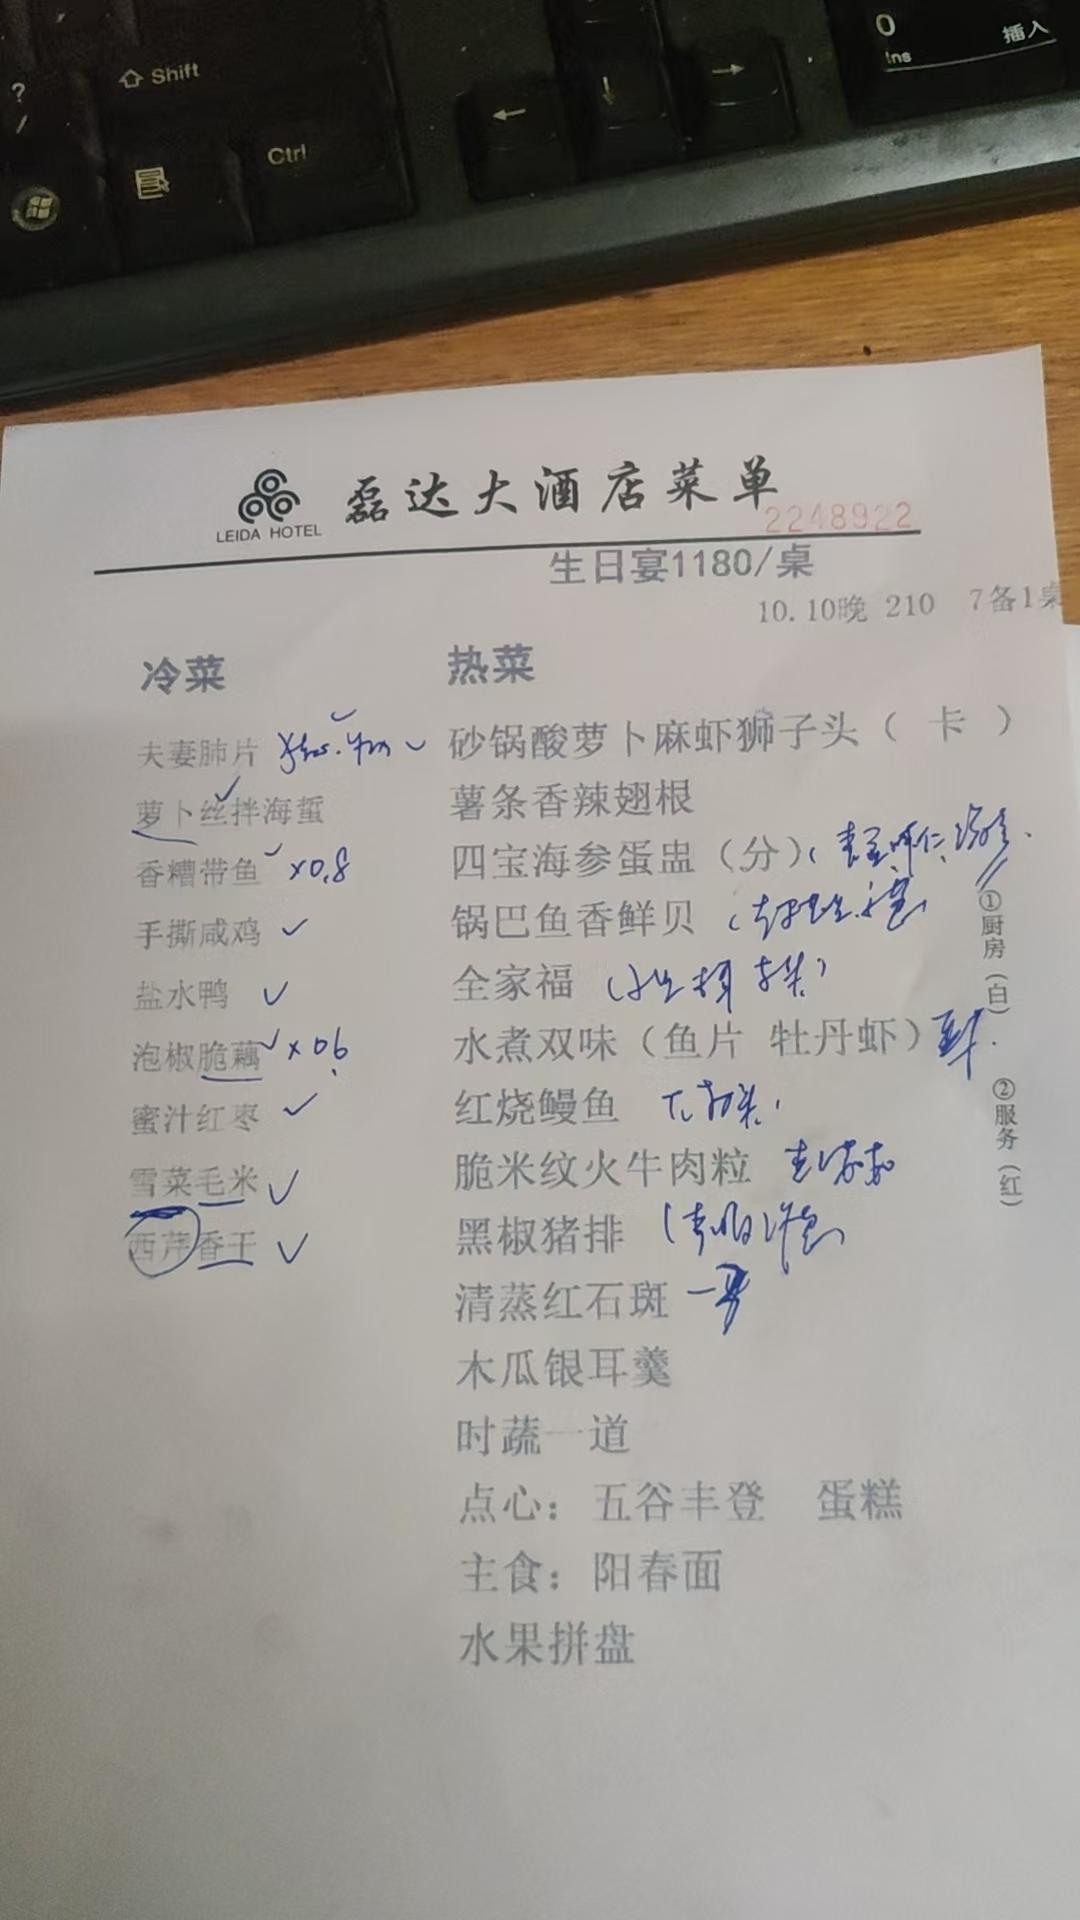 ? /
Shift
Ctrl
←
↓
→
0
Ins
插入
LEIDA HOTEL
磊达大酒店菜单
2248922
生日宴1180/桌
10.10晚 210 7备1桌
冷菜
夫妻肺片
萝卜丝拌海蜇
香糟带鱼 ×0.8
手撕咸鸡
盐水鸭
泡椒脆藕 ×0.6
蜜汁红枣
雪菜毛米
西芹香干
热菜
砂锅酸萝卜麻虾狮子头（ 卡 ）
薯条香辣翅根
四宝海参蛋盅（分）
锅巴鱼香鲜贝
全家福
水煮双味（鱼片 牡丹虾）
红烧鳗鱼
脆米纹火牛肉粒
黑椒猪排
清蒸红石斑
木瓜银耳羹
时蔬一道
点心：五谷丰登 蛋糕
主食：阳春面
水果拼盘
①厨房（白）
②服务（红）